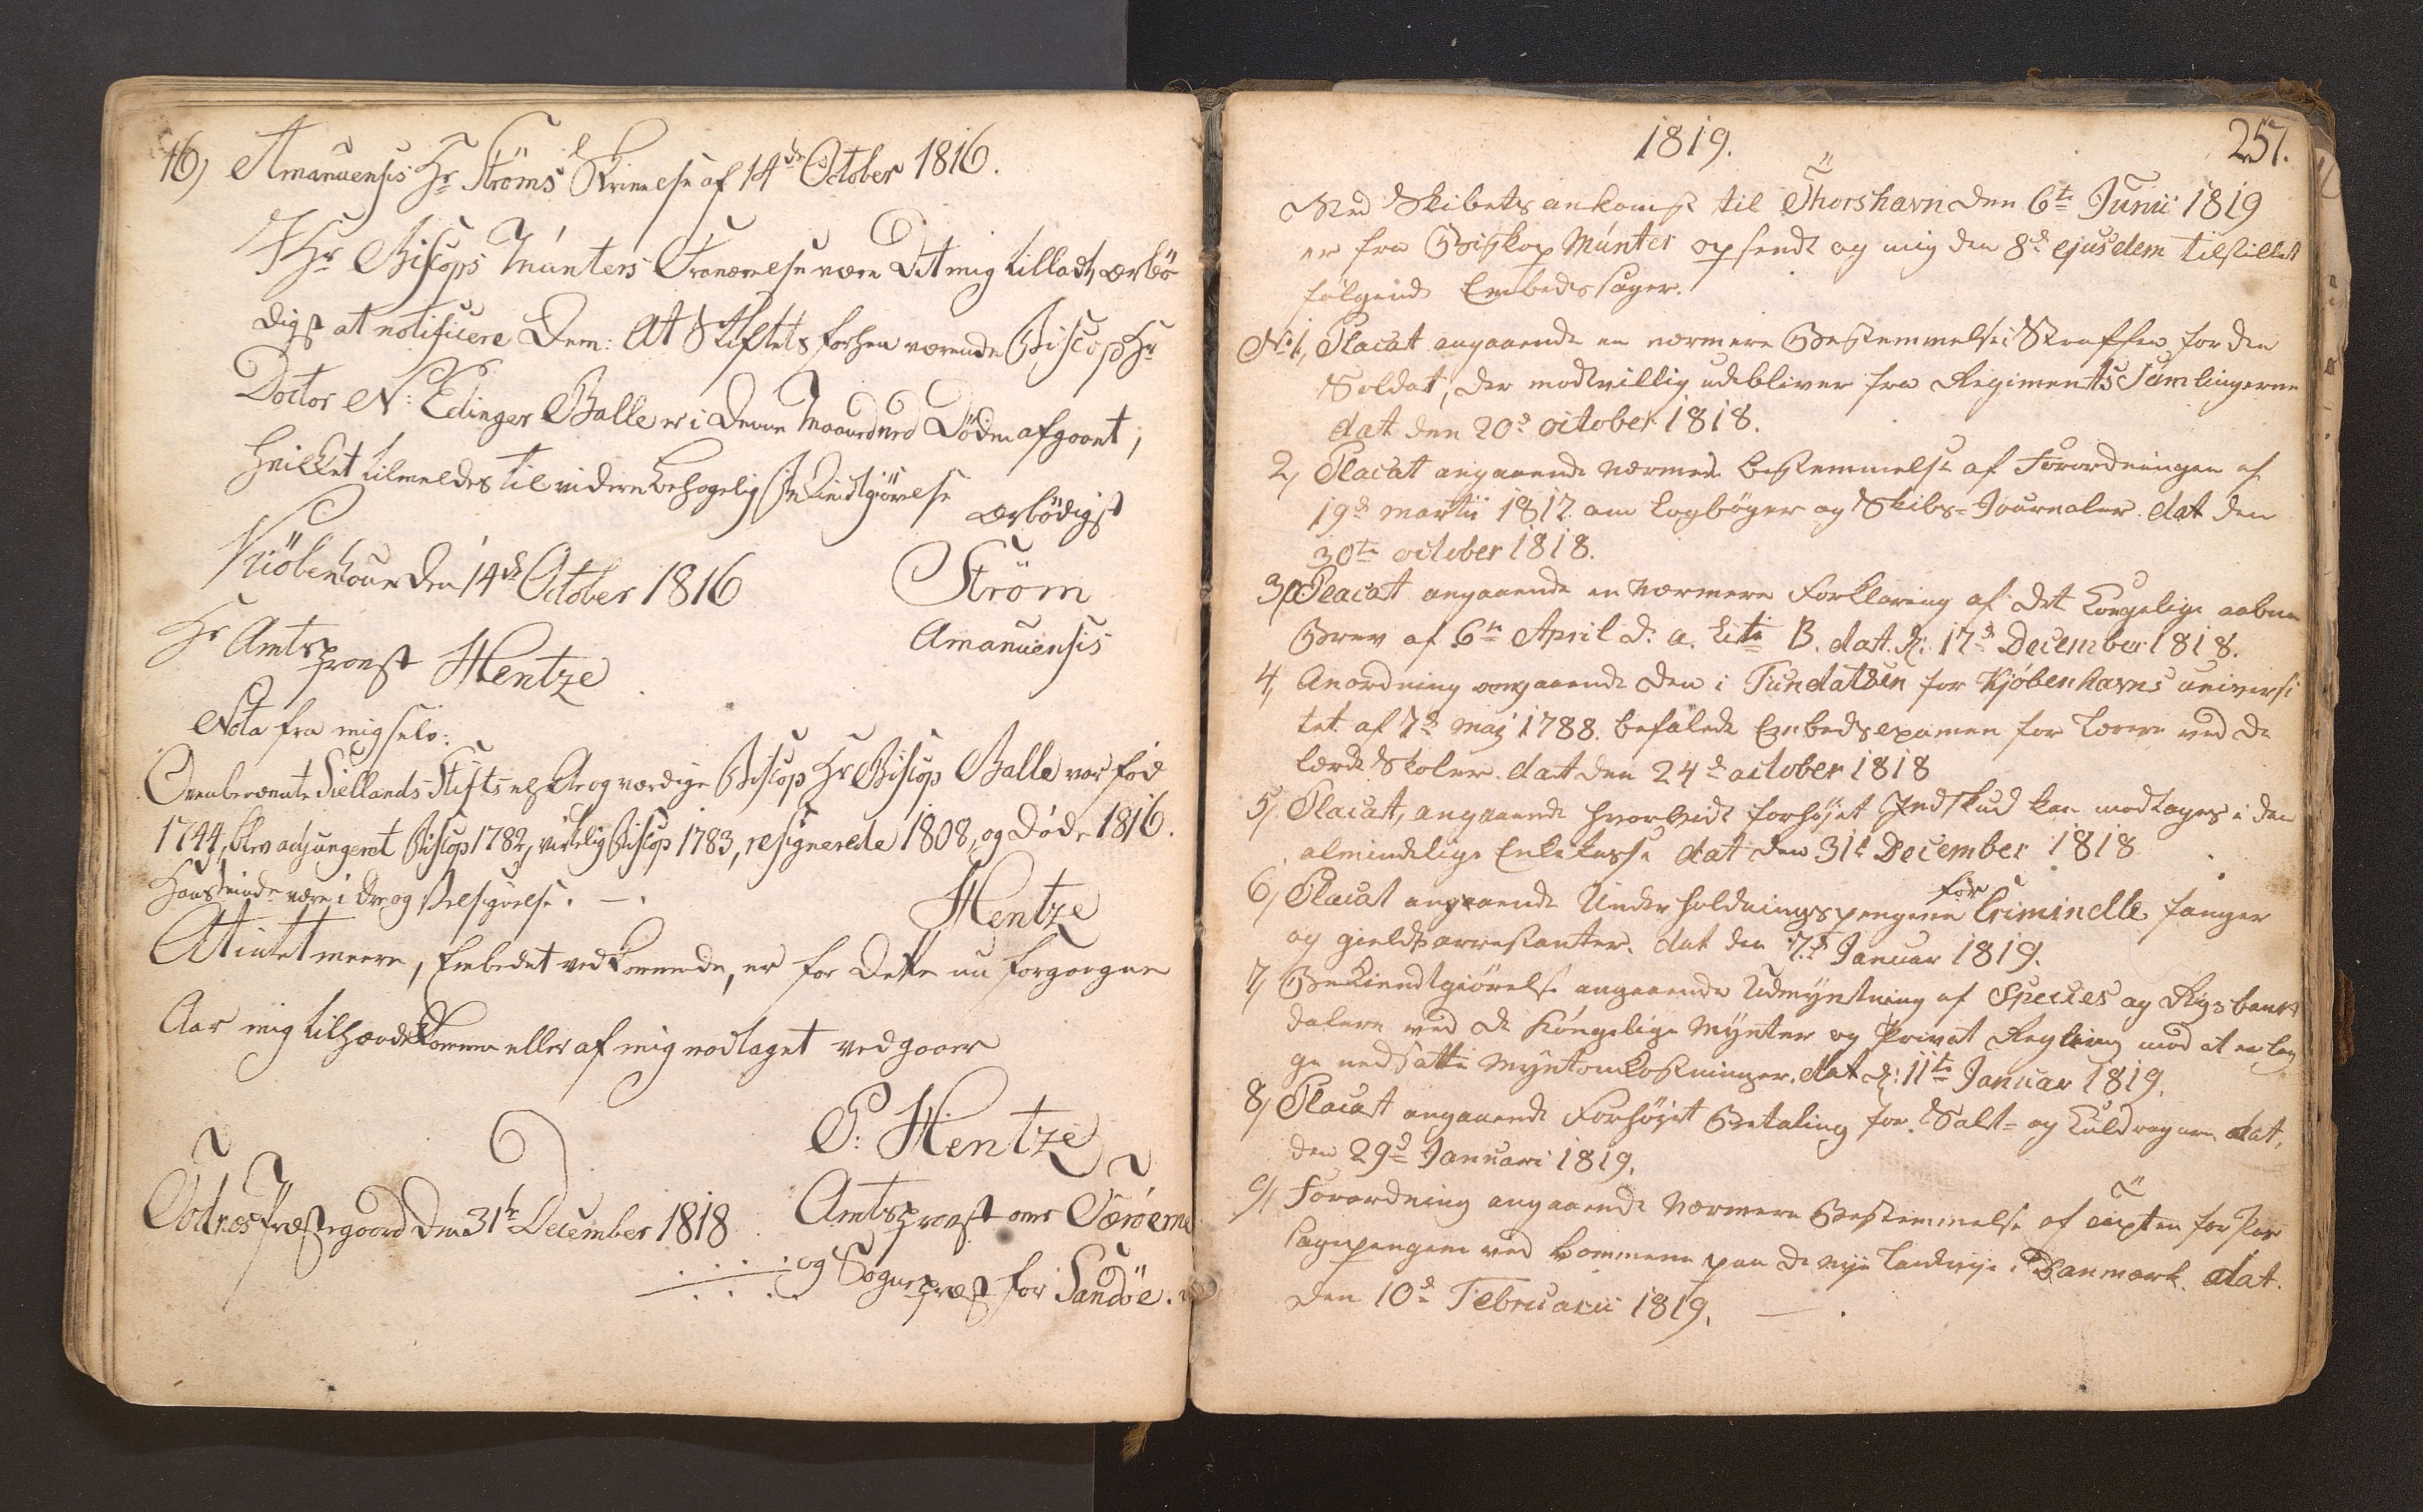 16) Amanuensis Hr Ströms Skrivelse af 14de October 1816.
I Hr Biscops Münters Fraværelse være Det mig tilladt, ærbö
digst at notificere Dem: At Stiftets forhen værende Biscop Hr
Doctor N: Edinger Balle er i denne Maaned ved Döden afgaaet,
hvilket tilmeldes til videre behagelig Bekiendtgiörelse
ærbödigst
Kiöbenhavn den 14de October 1816
Ström
Amanuensis
Hr Amtsprovst Hentze
Nota fra mig selv:
Ovenbenævnte Siellands Stifts ærværdige Biscop Hr Biscop Balle var fød
1744, blev adjungeret Biscop 1782, virkelig Biscop 1783, resignerede 1808, og døde 1816.
Hans Minde være i Ære og Velsignelse. —.
Hentze
At intet meere, Embedet vedkommende, er for dette nu forgangne
Aar mig tilhændekommen eller af mig modtaget vedgaaer
P: Hentze
Amtsprovst over Færöerne
Todnæs Præstegaard den 31te December 1818
og Sognepræst for Sandöe.
1819.
257.
Med Skibets ankomst til Thorshavn den 6te Junii 1819
er fra Biskop Münter opsendt og mig den 8de ejusdem tilstillet
følgende Embedssager.
No 1, Placat angaaende en nærmere Bestemmelse i Straffen for den
Soldat, der modvillig udebliver fra Regiments Samlingerne
dat den 20de october 1818.
2, Placat angaaende nærmere bestemmelse af Forordningen af
19de martii 1817 om Logbøger og Skibs-Journaler. dat den
30te october 1818.
3, Placat angaaende en nærmere Forklaring af det Kongelige aabne
Brev af 6te April d. a. Litr B. dat. d: 17de December 1818.
4, Anordning angaaende den i Fundatsen for Kjöbenhavns universi
tet af 7de maj 1788. befalede Embedsexamen for Lærere ved de
lærde Skoler. dat den 24de october 1818
5, Placat, angaaende hvorvidt forhøjet Indskud kan modtages i den
almindelige Enkekasse dat den 31te December 1818
6, Placat angaaende Underholdningspengene for Criminelle fanger
og gieldsarrestanter. dat den 7de Januar 1819.
7, Bekiendtgiörelse angaaende Udmyntning af Species og Rigsbank
dalere ved de Kongelige Mynter og Privat Regning mod at erlæg
ge nedsatte Myntomkostninger. dat d: 11te Januar 1819.
8, Placat angaaende Forhøjet Betaling for Salt- og Kuldragere dat,
den 29de Januari 1819.
9, Forordning angaaende nærmere Bestemmelse af
ved Bommene paa de nye Landveje i Danmark. dat.
den 10de Februarii 1819. — .